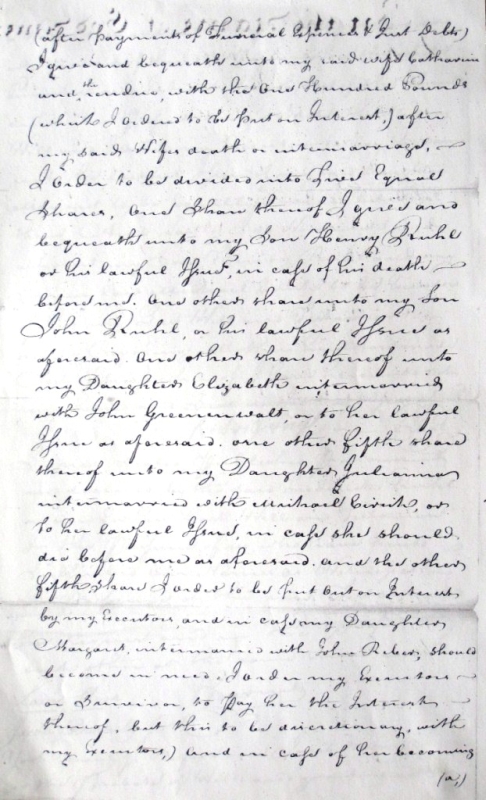 (after Payments of Funeral Expences & Just Debts)
I give and bequeath unto my said wife Catharina
and the residue, with the One Hundred Pounds
(which I ordered to be put on Interest,) after
my said Wifes death or intermarriage,
I Order to be divided into Five Equal
Shares, One Share thereof I give and
bequeath unto my Son Henry Ruhl
or his lawful Issue, in case of his death
before me. One other share unto my Son
John Ruhl, or his lawful Issue as
aforesaid. One other share thereof unto
my Daughter Elizabeth intermarried
with John Greenenwalt, or to her lawful
Issue as aforesaid. one other fifth share
thereof unto my Daughter Julianna
intermarried with Michael, or
to her lawful Issue, in case she should
die before me as aforesaid. and the other
fifth share I order to be put out on Interest
by my Executors, and in case my Daughter
Margaret, intermarried with John Reber, should
become in need, I order my Executors
or Survivor, to Pay her the Interest
thereof, but this to be discretionary, with
my Executors,) And in case of her becoming
(a,)